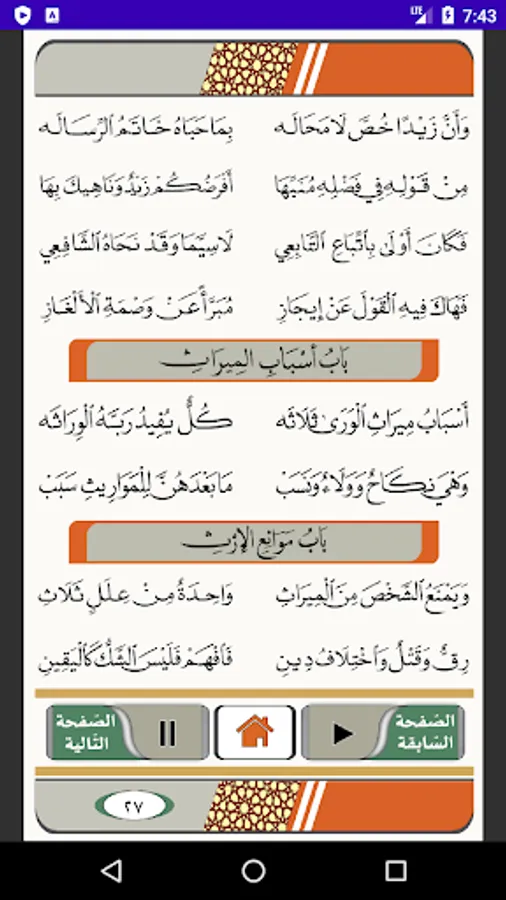 LTE 7:43
وَأَنَّ زَيْدًا خُصَّ لَا مَحَالَه بِمَا حَبَاهُ خَاتَمُ الرِّسَالَه
مِنْ قَوْلِهِ فِي فَضْلِهِ مُنَبِّهَا أَفْرَضُكُمْ زَيْدٌ وَنَاهِيكَ بِهَا
فَكَانَ أَوْلَى بِاتِّبَاعِ التَّابِعِي لَاسِيَّمَا وَقَدْ نَحَاهُ الشَّافِعِي
فَهَاكَ فِيهِ الْقَوْلَ عَنْ إِيجَازِ مُبَرَّأً عَنْ وَصْمَةِ الْأَلْغَازِ
بَابُ أَسْبَابِ المِيرَاثِ
أَسْبَابُ مِيرَاثِ الْوَرَىٰ ثَلَاثَه كُلٌّ يُفِيدُ رَبَّهُ الْوِرَاثَه
وَهْيَ نِكَاحٌ وَوَلَاءٌ وَنَسَبْ مَا بَعْدَهُنَّ لِلْمَوَارِيثِ سَبَبْ
بَابُ مَوَانِعِ الإِرْثِ
وَيَمْنَعُ الشَّخْصَ مِنَ الْمِيرَاثِ وَاحِدَةٌ مِنْ عِلَلٍ ثَلَاثِ
رِقٌّ وَقَتْلٌ وَاخْتِلَافُ دِينِ فَافْهَمْ فَلَيْسَ الشَّكُّ كَالْيَقِينِ
الصّفحة السّابقة
الصّفحة التّالية
٢٧